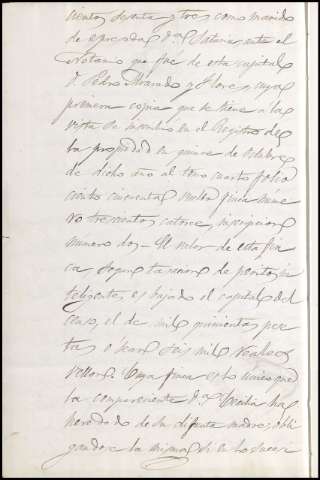 cientos setenta y tres como marido
de espresada D.ª Satur, ante el
Notario que fue de esta capital
D. Pedro Alvarado y Flores, cuya
primera copia que se tiene a la
vista se inscribió en el Registro de
la propiedad en quince de Octubre
de dicho año al tomo cuarto folio
ciento cincuenta vuelto finca núme
ro trescientos catorce, inscripcion
numero dos — El valor de esta fin
ca segun tasacion de peritos in
teligentes es bajado el capital del
censo, el de mil quinientas pese
tas o sean seis mil reales
vellon. Cuya finca es la unica que
la compareciente D.ª Cecilia ha
heredado de su difunta madre, obli
gandose la misma si en lo sucesi